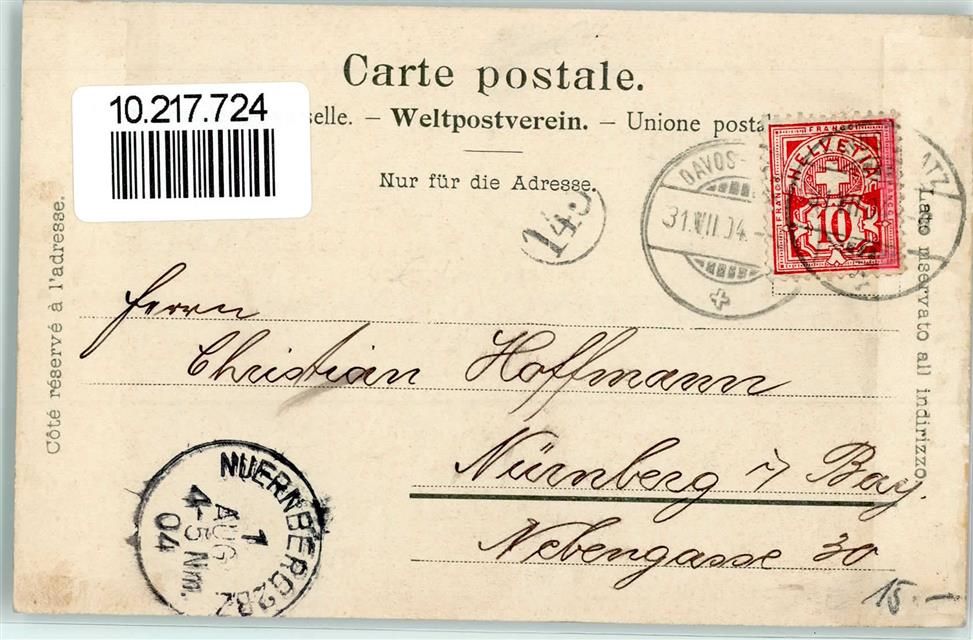 Carte postale.
10.217.724
selle. – Weltpostverein. – Unione posta
Nur für die Adresse.
Côté réservé à l'adresse.
Lato riservato all indirizzo.
FRANCO
HELVETIA
10
DAVOS-
ATZ
31.VII.04.-
145
Herrn
Christian Hoffmann
Nürnberg i/ Bay.
Nebengasse 30
NUERNBERG 2BZ
1
AUG
4-5 Nm.
04
15.-